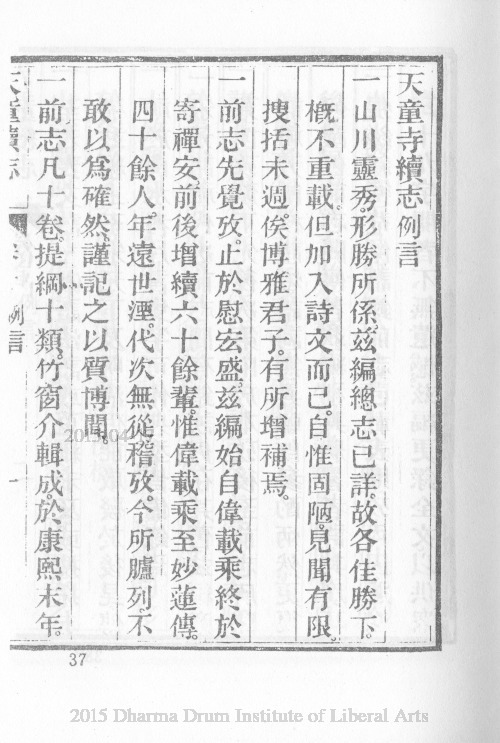 天童寺續志例言
一山川靈秀。形勝所係。茲編總志已詳。故各佳勝下。
槪不重載。但加入詩文而已。自惟固陋。見聞有限。
搜括未週。俟博雅君子。有所增補焉。
一前志先覺攷。止於慰宏盛。茲編始自偉載乘終於
寄禪安。前後增續六十餘輩。惟偉載乘至妙蓮傳。
四十餘人。年遠世湮。代次無從稽攷。今所臚列。不
敢以爲確然。謹記之以質博聞。
一前志凡十卷。提綱十類。竹窗介輯成。於康熙末年。
天童續志
例言
一
37
2015 Dharma Drum Institute of Liberal Arts